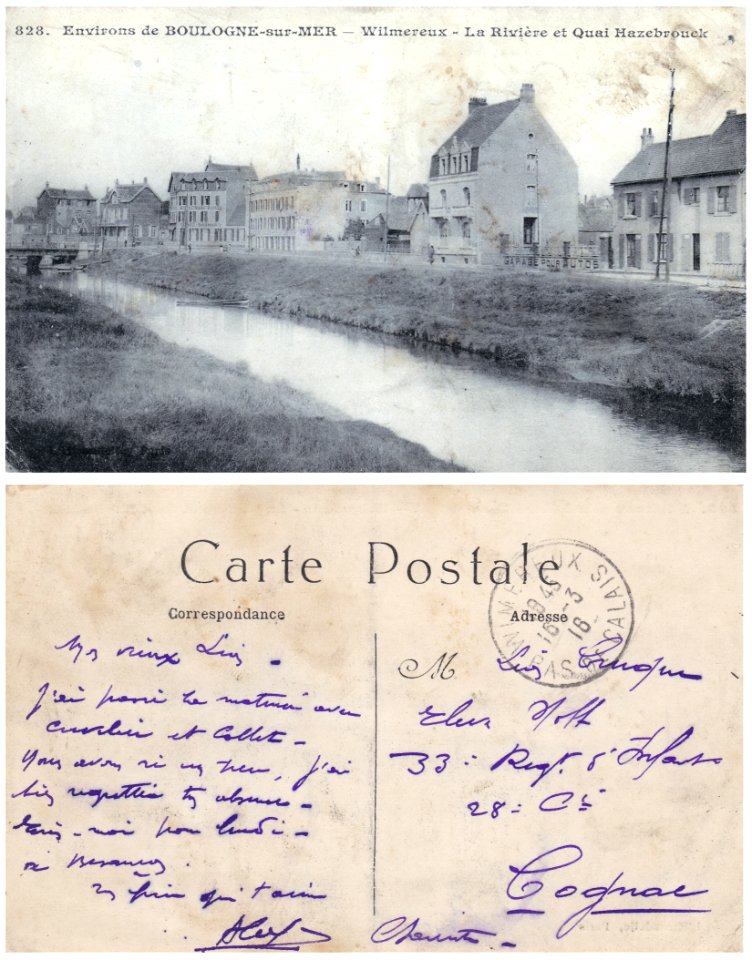 828. Environs de BOULOGNE-sur-MER — Wilmereux - La Rivière et Quai Hazebrouck
GARAGE POUR AUTOS
Carte Postale
Correspondance
Adresse
WIMEREUX
9 45
16 - 3
16
PAS DE CALAIS
Mon vieux
J'ai passé la matinée avec
et Collet -
Nous avons ri un peu, j'ai
bien regretté ton absence -
Ecris-moi pour lundi -
ton frère qui t'aime
M
Elève Off
33e Regt. d'Infanterie
28e Cie
Cognac
Charente -